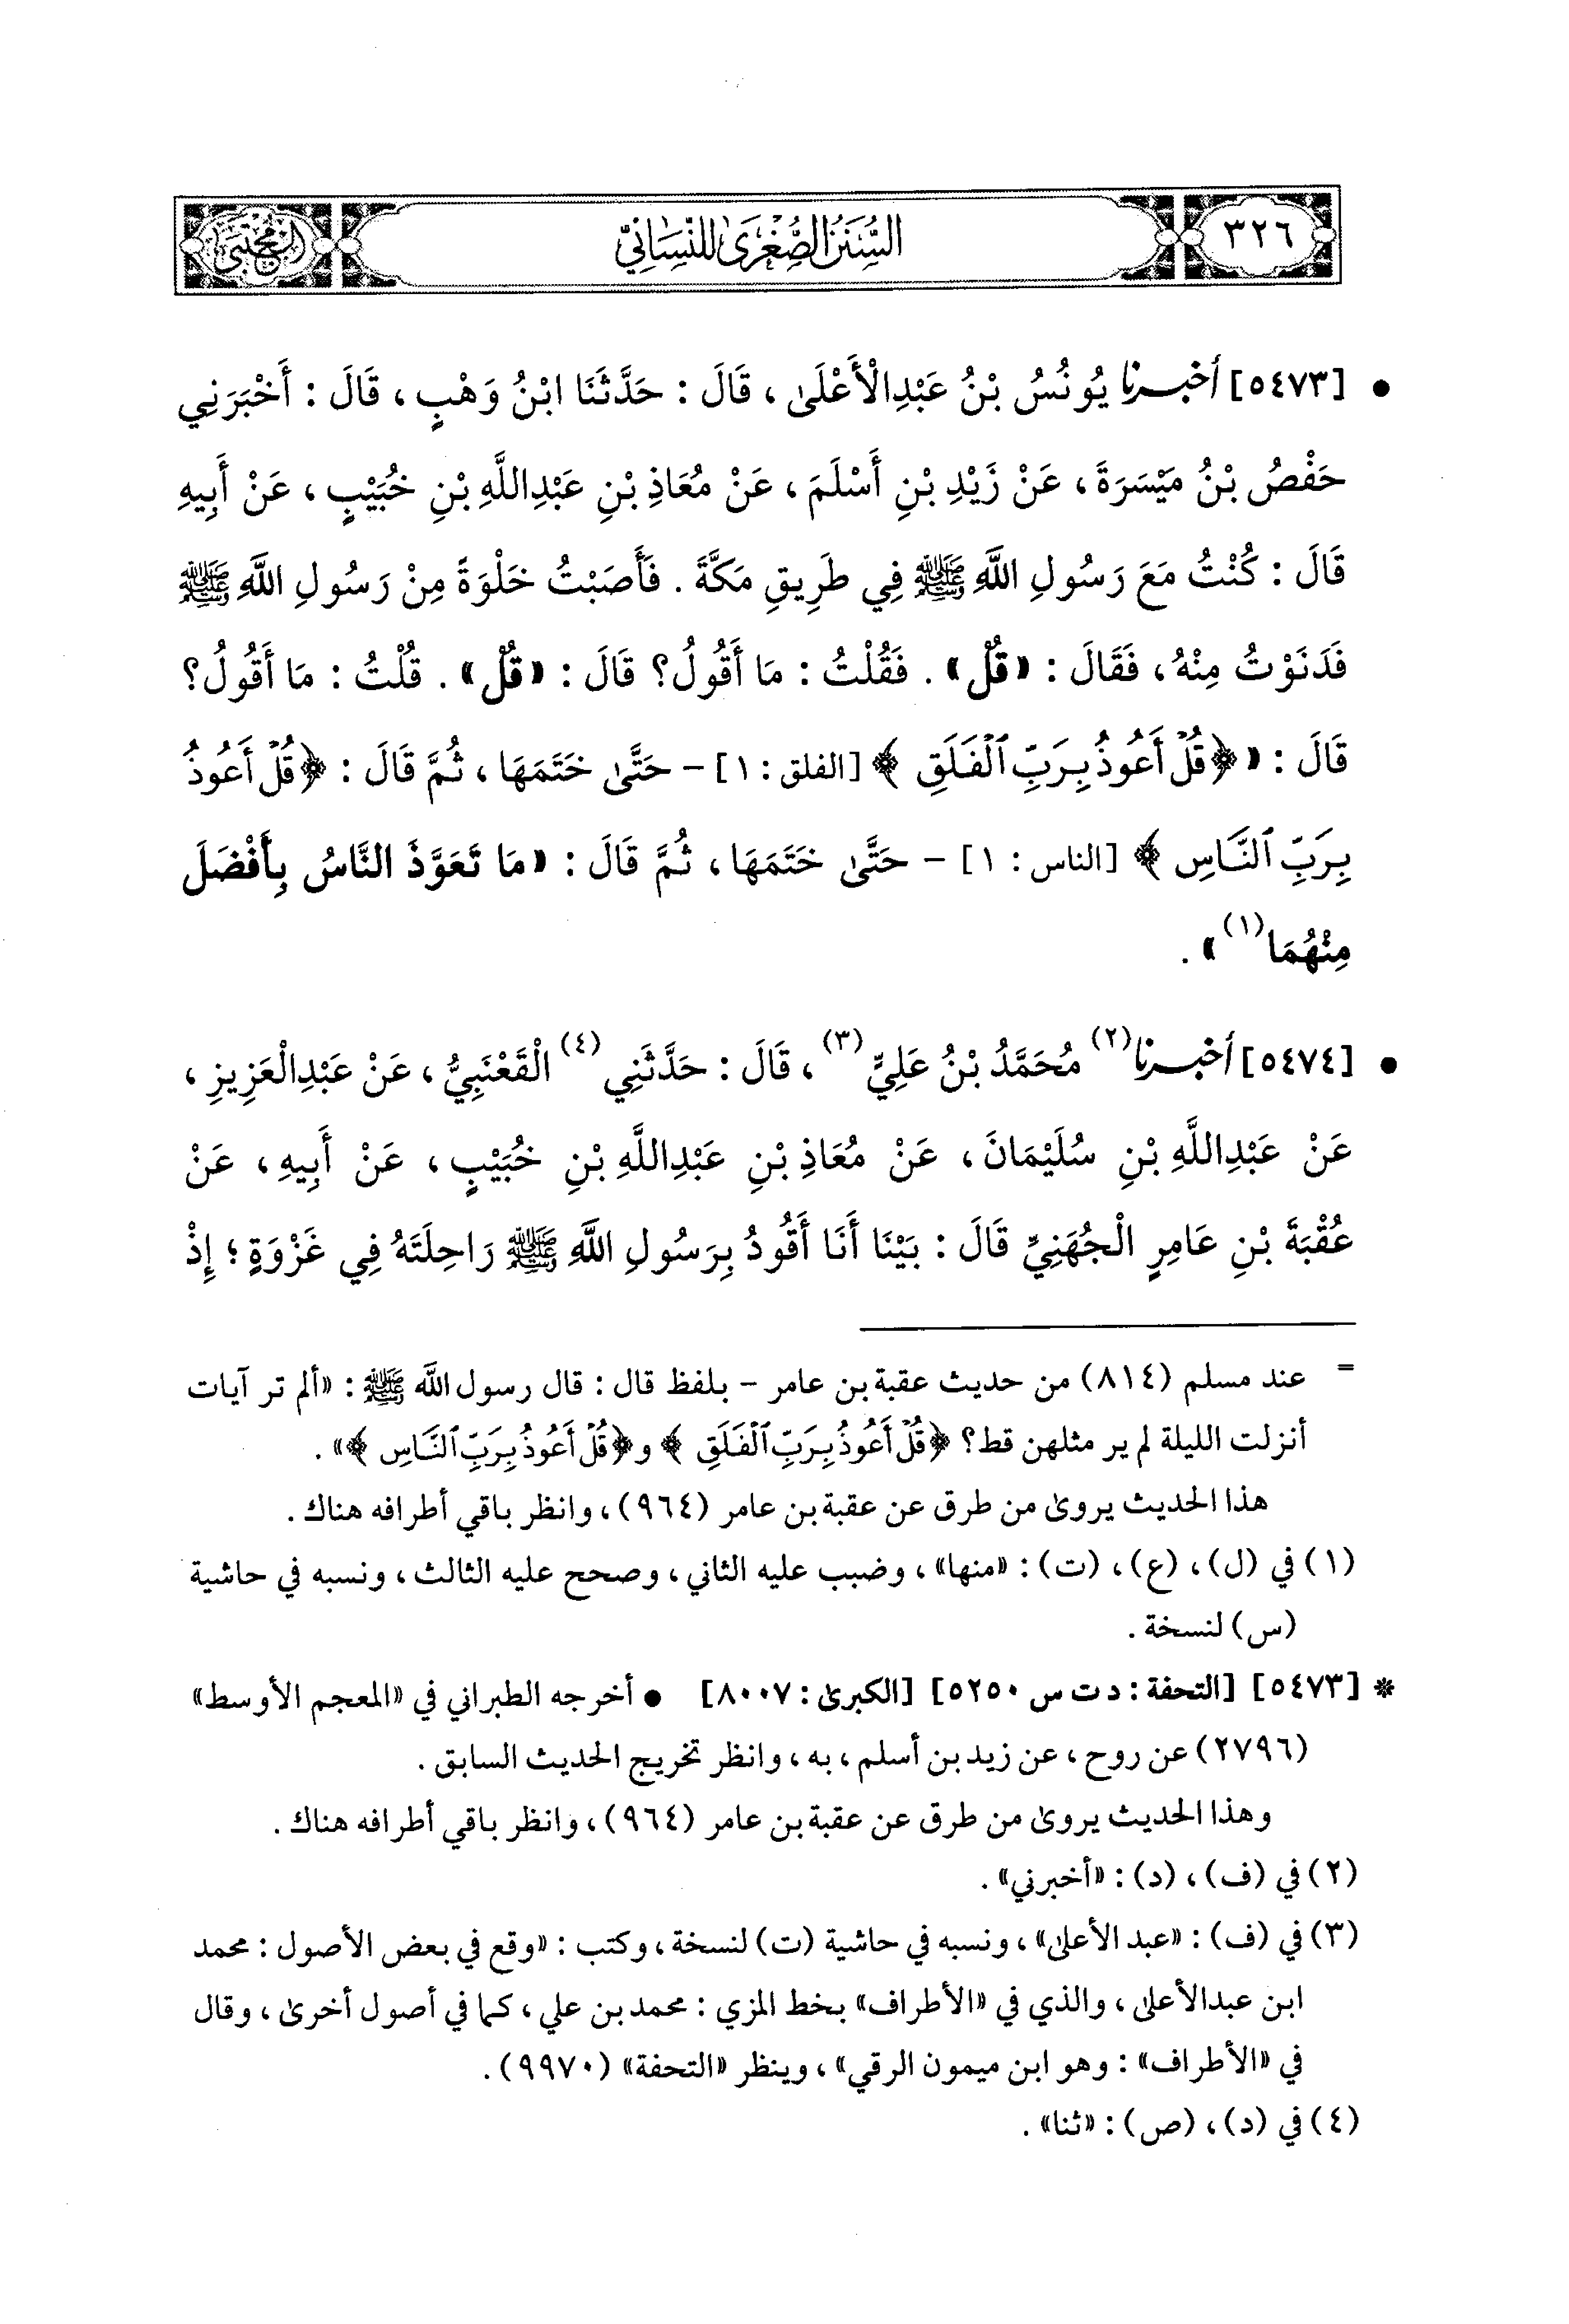 ٣٢٦
السُّنَنُ الصُّغْرَىٰ لِلنَّسَائِيِّ
المجتبى
• [٥٤٧٣] أخبرنا يُونُسُ بْنُ عَبْدِالْأَعْلَىٰ، قَالَ: حَدَّثَنَا ابْنُ وَهْبٍ، قَالَ: أَخْبَرَنِي
حَفْصُ بْنُ مَيْسَرَةَ، عَنْ زَيْدِ بْنِ أَسْلَمَ، عَنْ مُعَاذِ بْنِ عَبْدِاللَّهِ بْنِ خُبَيْبٍ، عَنْ أَبِيهِ
قَالَ: كُنْتُ مَعَ رَسُولِ اللَّهِ ﷺ فِي طَرِيقِ مَكَّةَ. فَأَصَبْتُ خَلْوَةً مِنْ رَسُولِ اللَّهِ ﷺ
فَدَنَوْتُ مِنْهُ، فَقَالَ: «قُلْ». فَقُلْتُ: مَا أَقُولُ؟ قَالَ: «قُلْ». قُلْتُ: مَا أَقُولُ؟
قَالَ: «﴿قُلْ أَعُوذُ بِرَبِّ ٱلْفَلَقِ﴾ [الفلق: ١] - حَتَّىٰ خَتَمَهَا، ثُمَّ قَالَ: ﴿قُلْ أَعُوذُ
بِرَبِّ ٱلنَّاسِ﴾ [الناس: ١] - حَتَّىٰ خَتَمَهَا، ثُمَّ قَالَ: «مَا تَعَوَّذَ النَّاسُ بِأَفْضَلَ
مِنْهُمَا(١)».
• [٥٤٧٤] أخبرنا(٢) مُحَمَّدُ بْنُ عَلِيٍّ(٣)، قَالَ: حَدَّثَنِي(٤) الْقَعْنَبِيُّ، عَنْ عَبْدِالْعَزِيزِ،
عَنْ عَبْدِاللَّهِ بْنِ سُلَيْمَانَ، عَنْ مُعَاذِ بْنِ عَبْدِاللَّهِ بْنِ خُبَيْبٍ، عَنْ أَبِيهِ، عَنْ
عُقْبَةَ بْنِ عَامِرٍ الْجُهَنِيِّ قَالَ: بَيْنَا أَنَا أَقُودُ بِرَسُولِ اللَّهِ ﷺ رَاحِلَتَهُ فِي غَزْوَةٍ؛ إِذْ
= عند مسلم (٨١٤) من حديث عقبة بن عامر - بلفظ قال: قال رسول اللَّه ﷺ: «ألم تر آيات
أنزلت الليلة لم ير مثلهن قط؟ ﴿قُلْ أَعُوذُ بِرَبِّ ٱلْفَلَقِ﴾ و﴿قُلْ أَعُوذُ بِرَبِّ ٱلنَّاسِ﴾».
هذا الحديث يروىٰ من طرق عن عقبة بن عامر (٩٦٤)، وانظر باقي أطرافه هناك.
(١) في (ل)، (ع)، (ت): «منها»، وضبب عليه الثاني، وصحح عليه الثالث، ونسبه في حاشية
(س) لنسخة.
* [٥٤٧٣] [التحفة: د ت س ٥٢٥٠] [الكبرىٰ: ٨٠٠٧] • أخرجه الطبراني في «المعجم الأوسط»
(٢٧٩٦) عن روح، عن زيد بن أسلم، به، وانظر تخريج الحديث السابق.
وهذا الحديث يروىٰ من طرق عن عقبة بن عامر (٩٦٤)، وانظر باقي أطرافه هناك.
(٢) في (ف)، (د): «أخبرني».
(٣) في (ف): «عبد الأعلىٰ»، ونسبه في حاشية (ت) لنسخة، وكتب: «وقع في بعض الأصول: محمد
ابن عبدالأعلىٰ، والذي في «الأطراف» بخط المزي: محمد بن علي، كما في أصول أخرىٰ، وقال
في «الأطراف»: وهو ابن ميمون الرقي»، وينظر «التحفة» (٩٩٧٠).
(٤) في (د)، (ص): «ثنا».